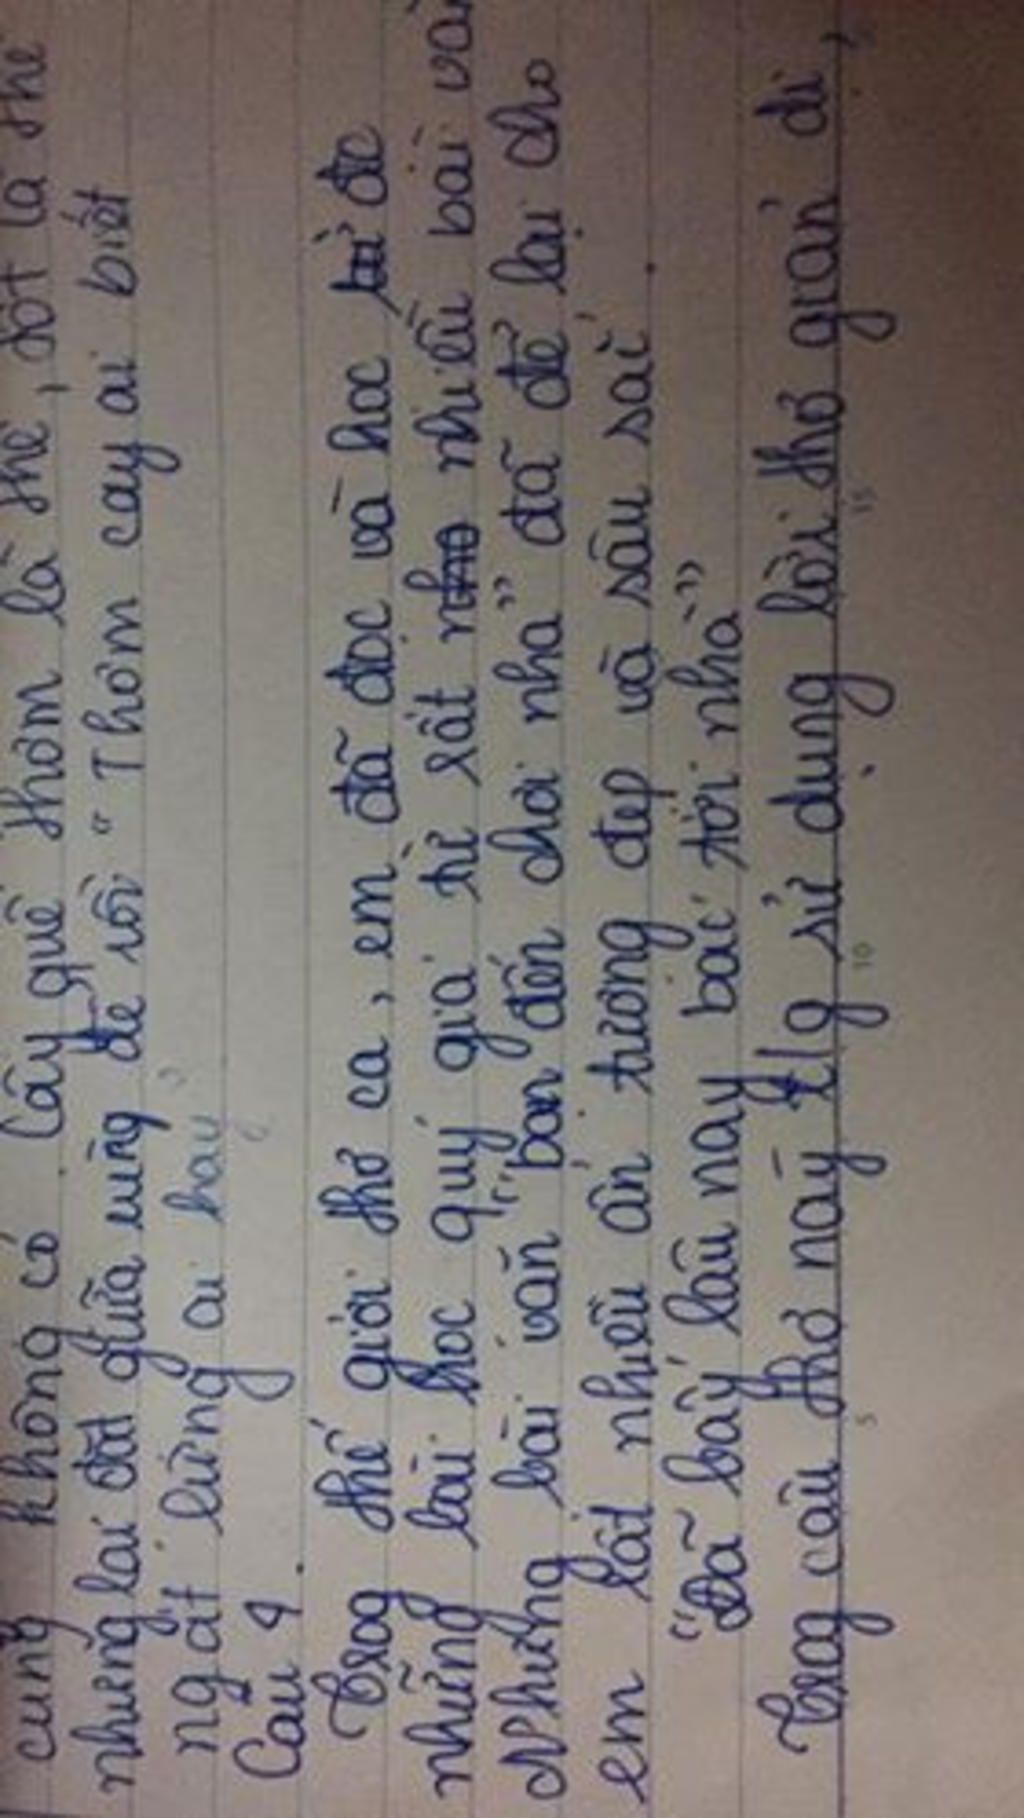 cũng không có. Cây quế thơm là thế, dót là thế
nhưng lại đặt giữa rừng để rồi "Thơm cay ai biết
ngát lừng ai hay"
Câu 4.
Trog thế giới thơ ca, em đã đọc và học đc
những bài học quý giá từ rất nhiều bài văn
Nhưng bài văn "bạn đến chơi nhà" đã để lại cho
em rất nhiều ấn tượng đẹp và sâu sắc.
"Đã bấy lâu nay bác tới nhà"
Trog câu thơ này t/g sử dụng lời thơ giản dị,